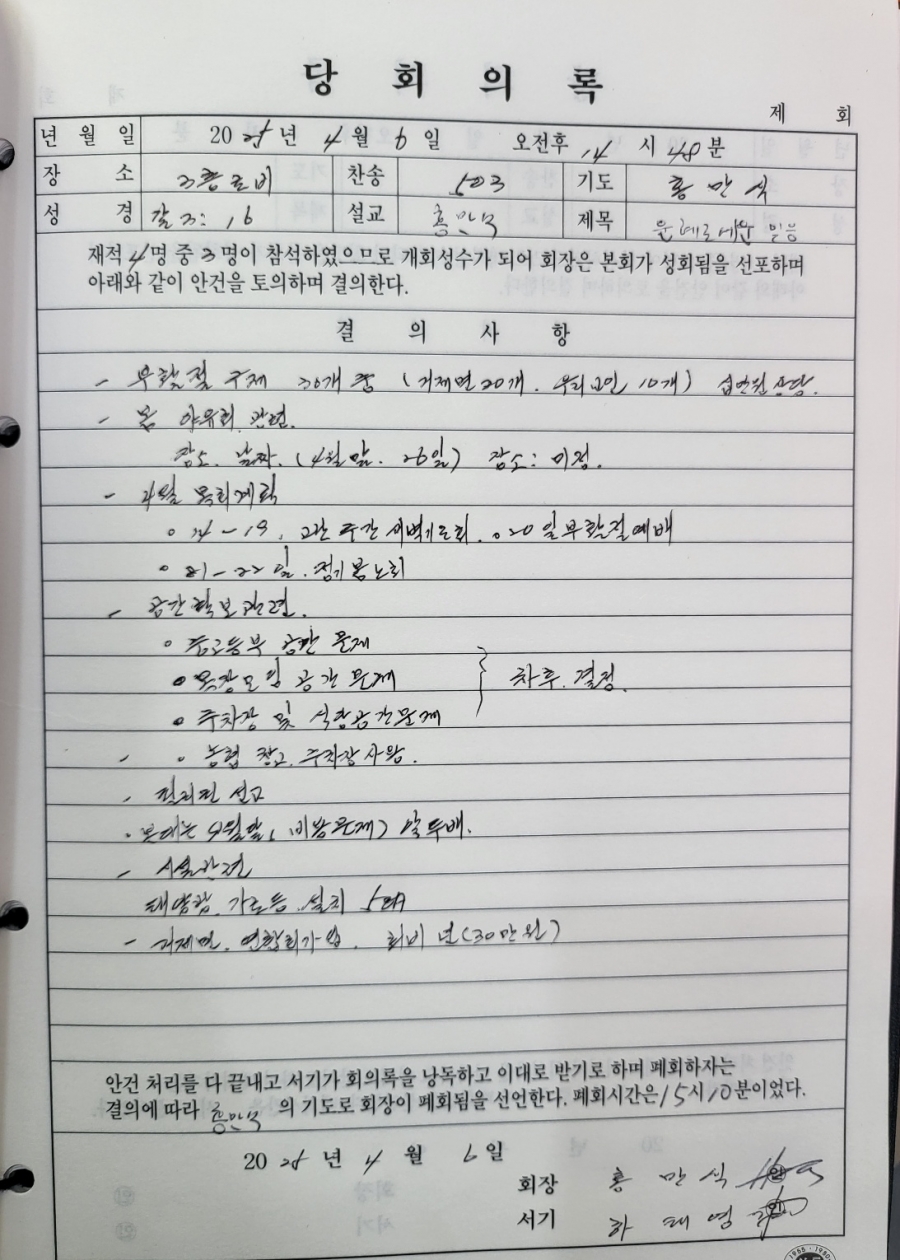 당 회 의 록
제 회
년 월 일 2025년 4월 6일 오전후 14시 48분
장 소 3층로비 찬송 503 기도 홍만식
성 경 갈 2:16 설교 홍만식 제목 은혜로 믿음
재적 4명 중 3명이 참석하였으므로 개회성수가 되어 회장은 본회가 성회됨을 선포하며
아래와 같이 안건을 토의하며 결의한다.
결 의 사 항
- 부활절 구제 30개 (거제면 20개. 우리교인 10개) 십만원 상당.
- 봄 야유회 관련.
장소. 날짜. (4월말. 26일) 장소: 미정.
- 4월 목회계획
◦ 14-19, 고난주간 새벽기도회. ◦ 20일 부활절예배
◦ 21-22일. 정기봄노회
- 공간확보관련.
◦ 중고등부 공간 문제
• 목장모임 공간문제 } 차후. 결정.
• 주차장 및 식당공간문제
- ◦ 농협 창고. 주차장사왕.
- 필리핀 선교
시설관련
태양광. 가로등. 설치 5대
- 거제면. 연합회가입. 회비 년(30만원)
안건 처리를 다 끝내고 서기가 회의록을 낭독하고 이대로 받기로 하며 폐회하자는
결의에 따라 홍만식 의 기도로 회장이 폐회됨을 선언한다. 폐회시간은 15시 10분이었다.
2025년 4월 6일
회장 홍만식
서기 하태영